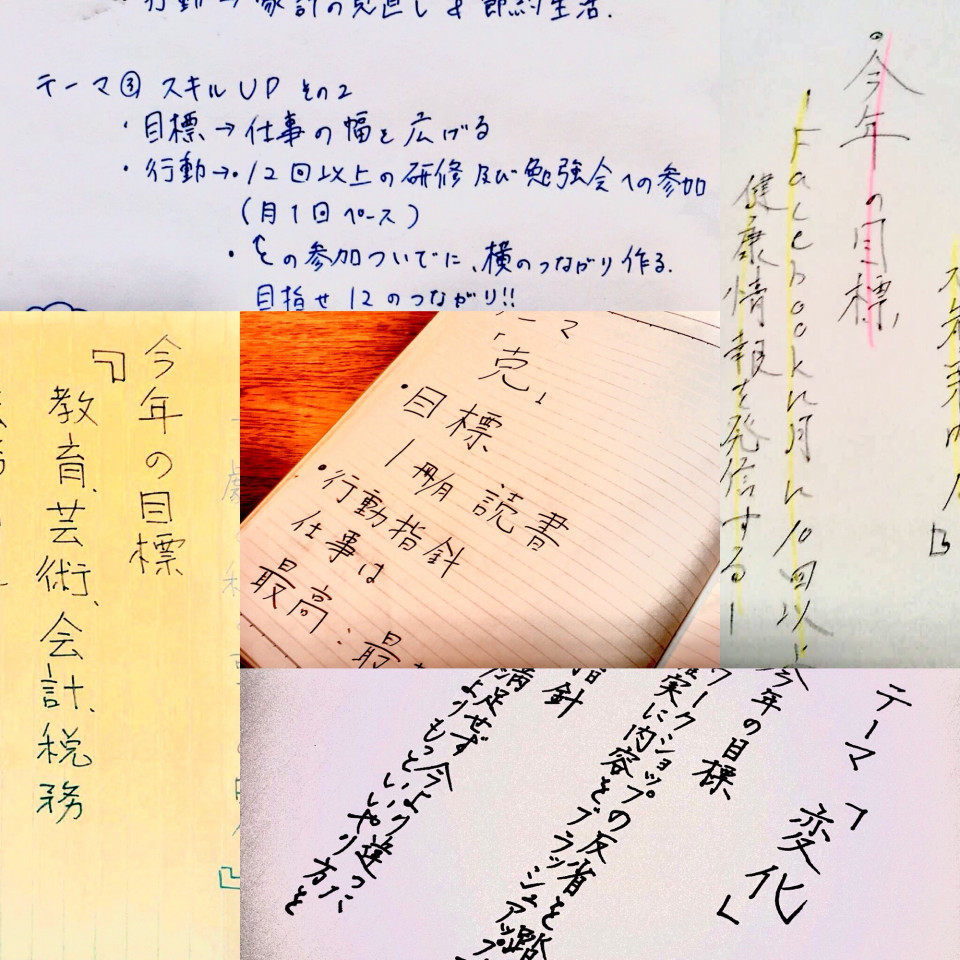 ・行動→家計の見直し&節約生活.
テーマ③ スキルUP その2
・目標→仕事の幅を広げる
・行動→・12回以上の研修及び勉強会への参加
(月1回ペース)
・その参加ついでに、横のつながり作る.
目指せ12のつながり!!
・今年の目標
・Facebookに月に10回以上
健康情報を発信する
今年の目標
『教育、芸術、会計、税務
テーマ
「克」
・目標
1冊/月 読書
・行動指針
仕事は
最高:最
テーマ「変化」
今年の目標
ワークショップの反省を踏
確実に内容をブラッシュアップ
指針
満足せず今より違った
よりもっといいやり方を